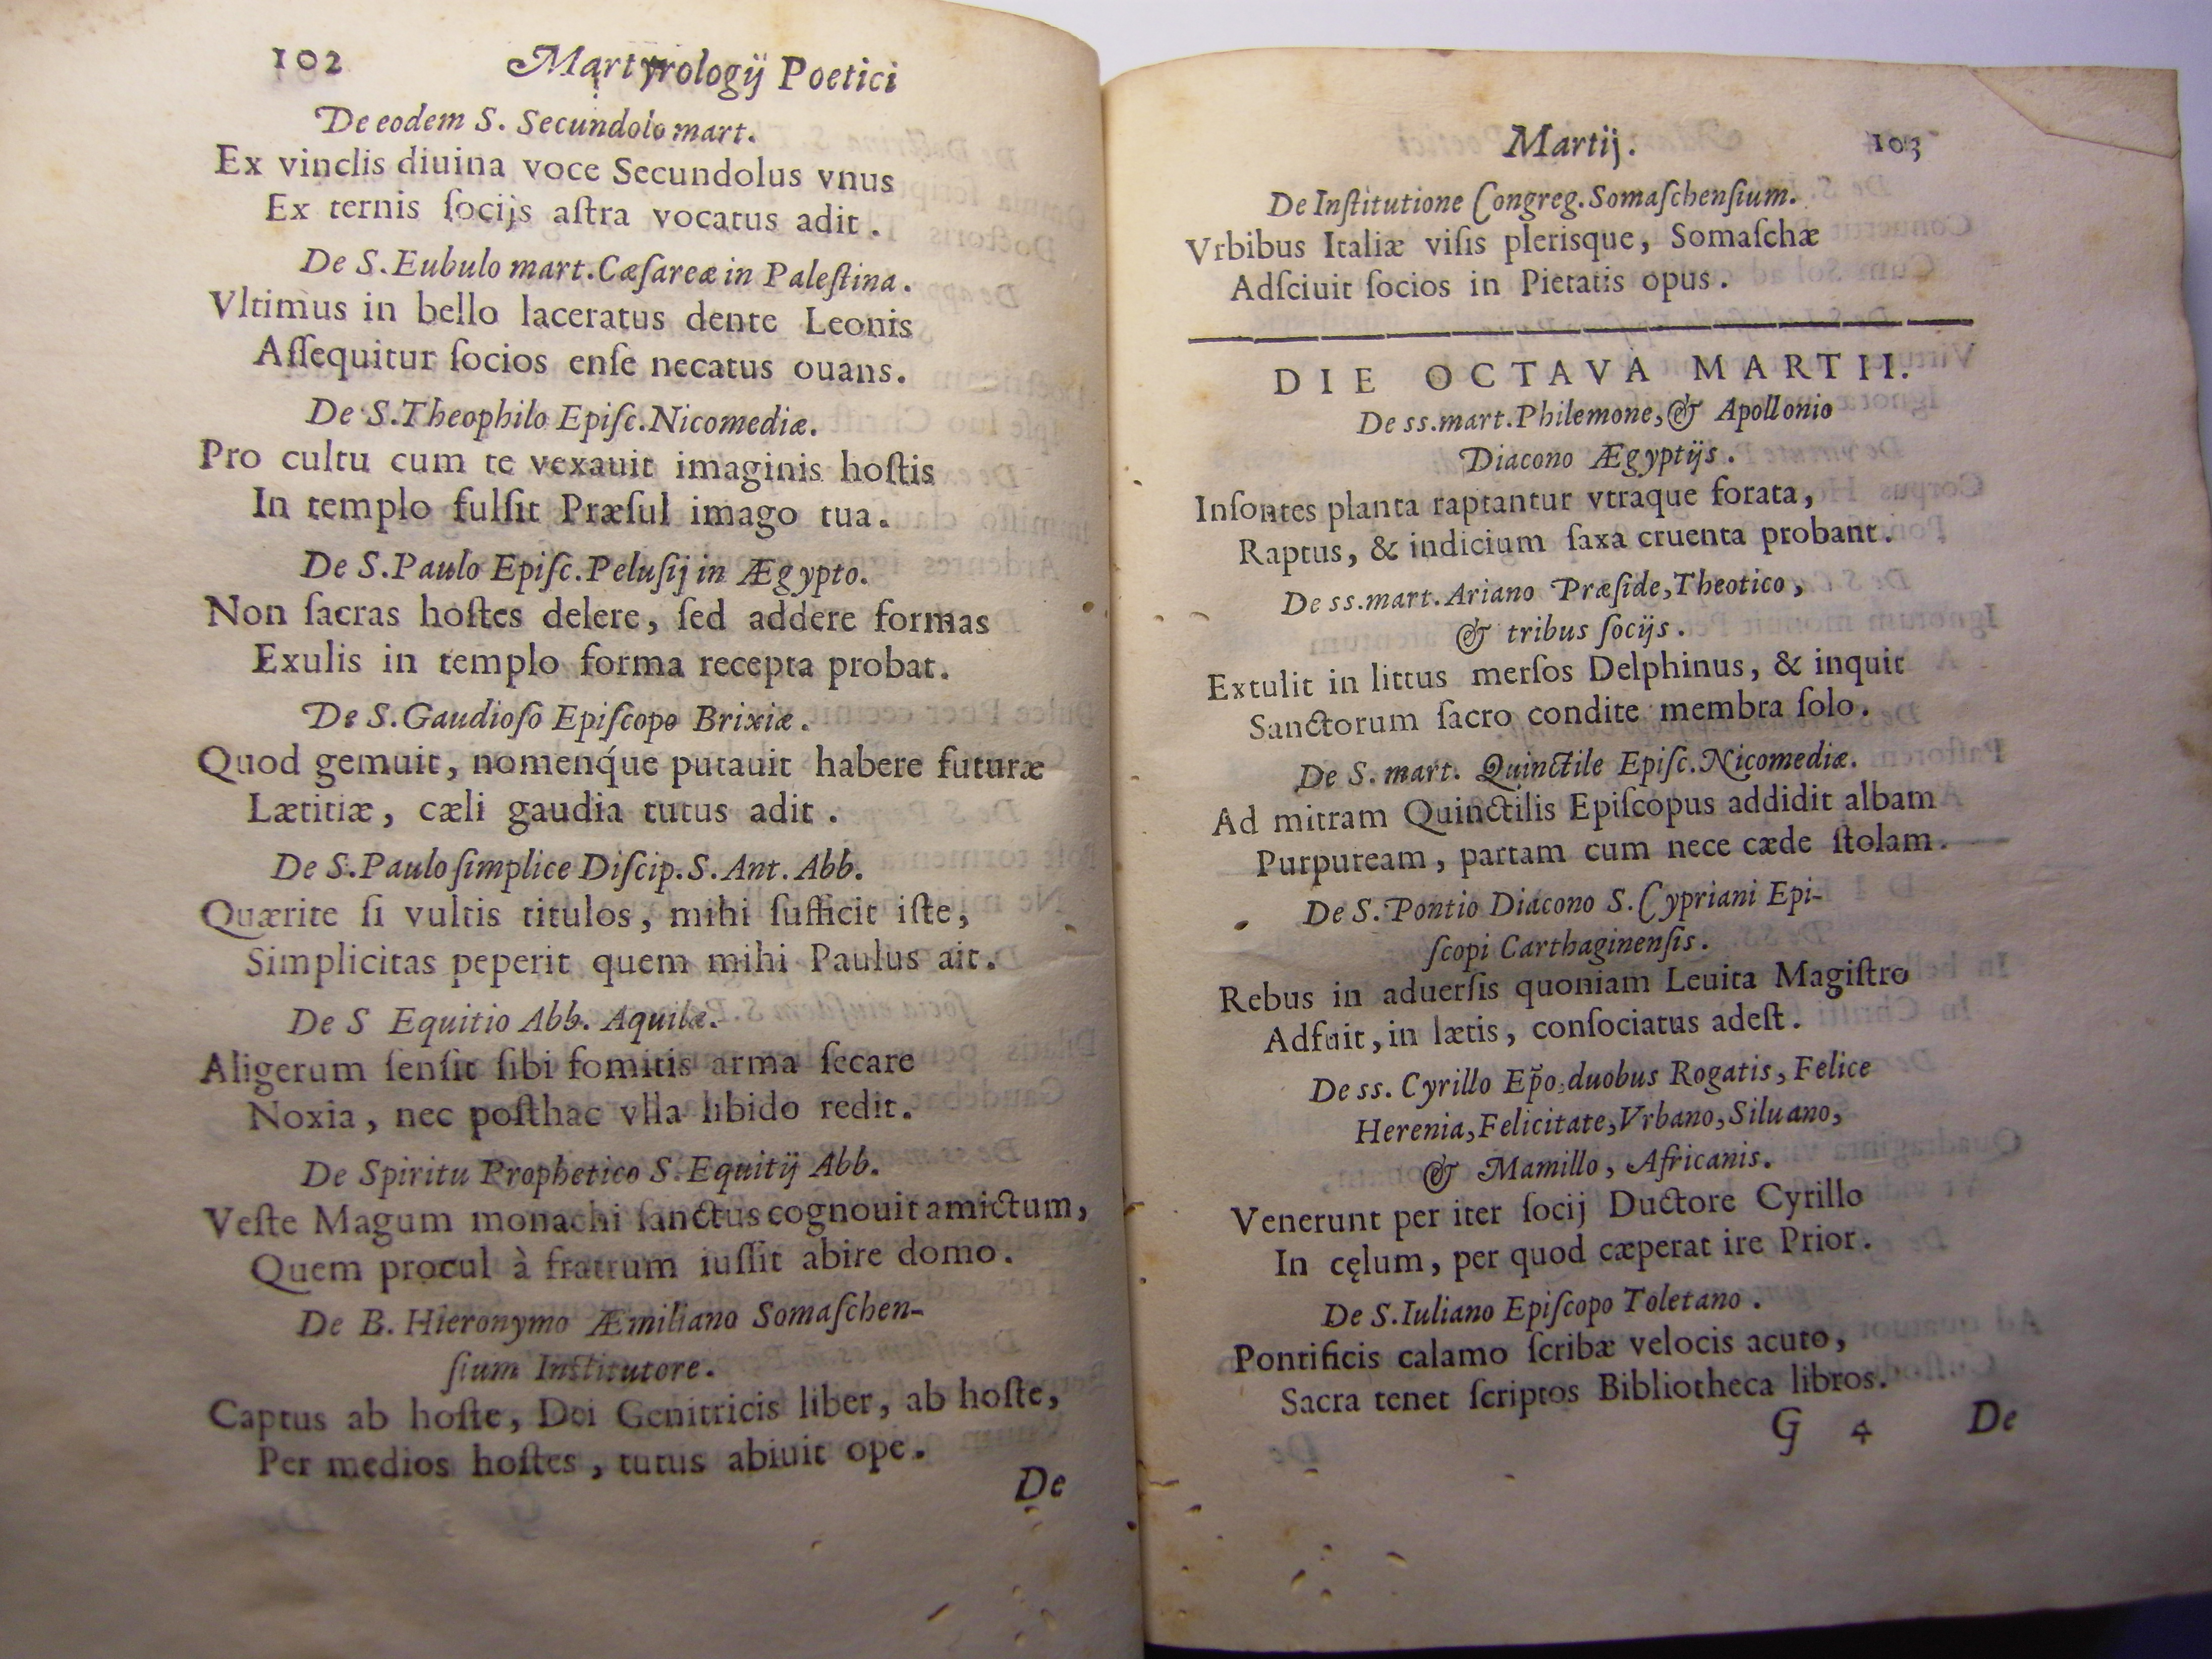 102 Martyrologij Poetici
De eodem S. Secundolo mart.
Ex vinclis diuina voce Secundolus vnus
Ex ternis ſocijs aſtra vocatus adit.
De S. Eubulo mart. Cæſareæ in Paleſtina.
Vltimus in bello laceratus dente Leonis
Aſſequitur ſocios enſe necatus ouans.
De S. Theophilo Epiſc. Nicomediæ.
Pro cultu cum te vexauit imaginis hoſtis
In templo fulſit Præſul imago tua.
De S. Paulo Epiſc. Peluſij in Ægypto.
Non ſacras hoſtes delere, ſed addere formas
Exulis in templo forma recepta probat.
De S. Gaudioſo Epiſcopo Brixiæ.
Quod gemuit, nomenq́ue putauit habere futuræ
Lætitiæ, cæli gaudia tutus adit.
De S. Paulo ſimplice Diſcip. S. Ant. Abb.
Quærite ſi vultis titulos, mihi ſufficit iſte,
Simplicitas peperit quem mihi Paulus ait.
De S Equitio Abb. Aquilæ.
Aligerum ſenſit ſibi fomitis arma ſecare
Noxia, nec poſthac vlla libido redit.
De Spiritu Prophetico S. Equitij Abb.
Veſte Magum monachi ſanctus cognouit amictum,
Quem procul à fratrum iuſſit abire domo.
De B. Hieronymo Æmiliano Somaſchen-
ſium Inſtitutore.
Captus ab hoſte, Dei Genitricis liber, ab hoſte,
Per medios hoſtes, tutus abiuit ope.
De
Martij. 103
De Inſtitutione Congreg. Somaſchenſium.
Vrbibus Italiæ viſis plerisque, Somaſchæ
Adſciuit ſocios in Pietatis opus.
DIE OCTAVA MARTII.
De ss. mart. Philemone, & Apollonio
Diacono Ægyptijs.
Inſontes planta raptantur vtraque forata,
Raptus, & indicium ſaxa cruenta probant.
De ss. mart. Ariano Præſide, Theotico,
& tribus ſocijs.
Extulit in littus merſos Delphinus, & inquit
Sanctorum ſacro condite membra ſolo.
De S. mart. Quinctile Epiſc. Nicomediæ.
Ad mitram Quinctilis Epiſcopus addidit albam
Purpuream, partam cum nece cæde ſtolam.
De S. Pontio Diacono S. Cypriani Epi-
ſcopi Carthaginenſis.
Rebus in aduerſis quoniam Leuita Magiſtro
Adfuit, in lætis, conſociatus adeſt.
De ss. Cyrillo Ep̃o, duobus Rogatis, Felice
Herenia, Felicitate, Vrbano, Siluano,
& Mamillo, Africanis.
Venerunt per iter ſocij Ductore Cyrillo
In cęlum, per quod cæperat ire Prior.
De S. Iuliano Epiſcopo Toletano.
Pontificis calamo ſcribæ velocis acuto,
Sacra tenet ſcriptos Bibliotheca libros.
G 4 De